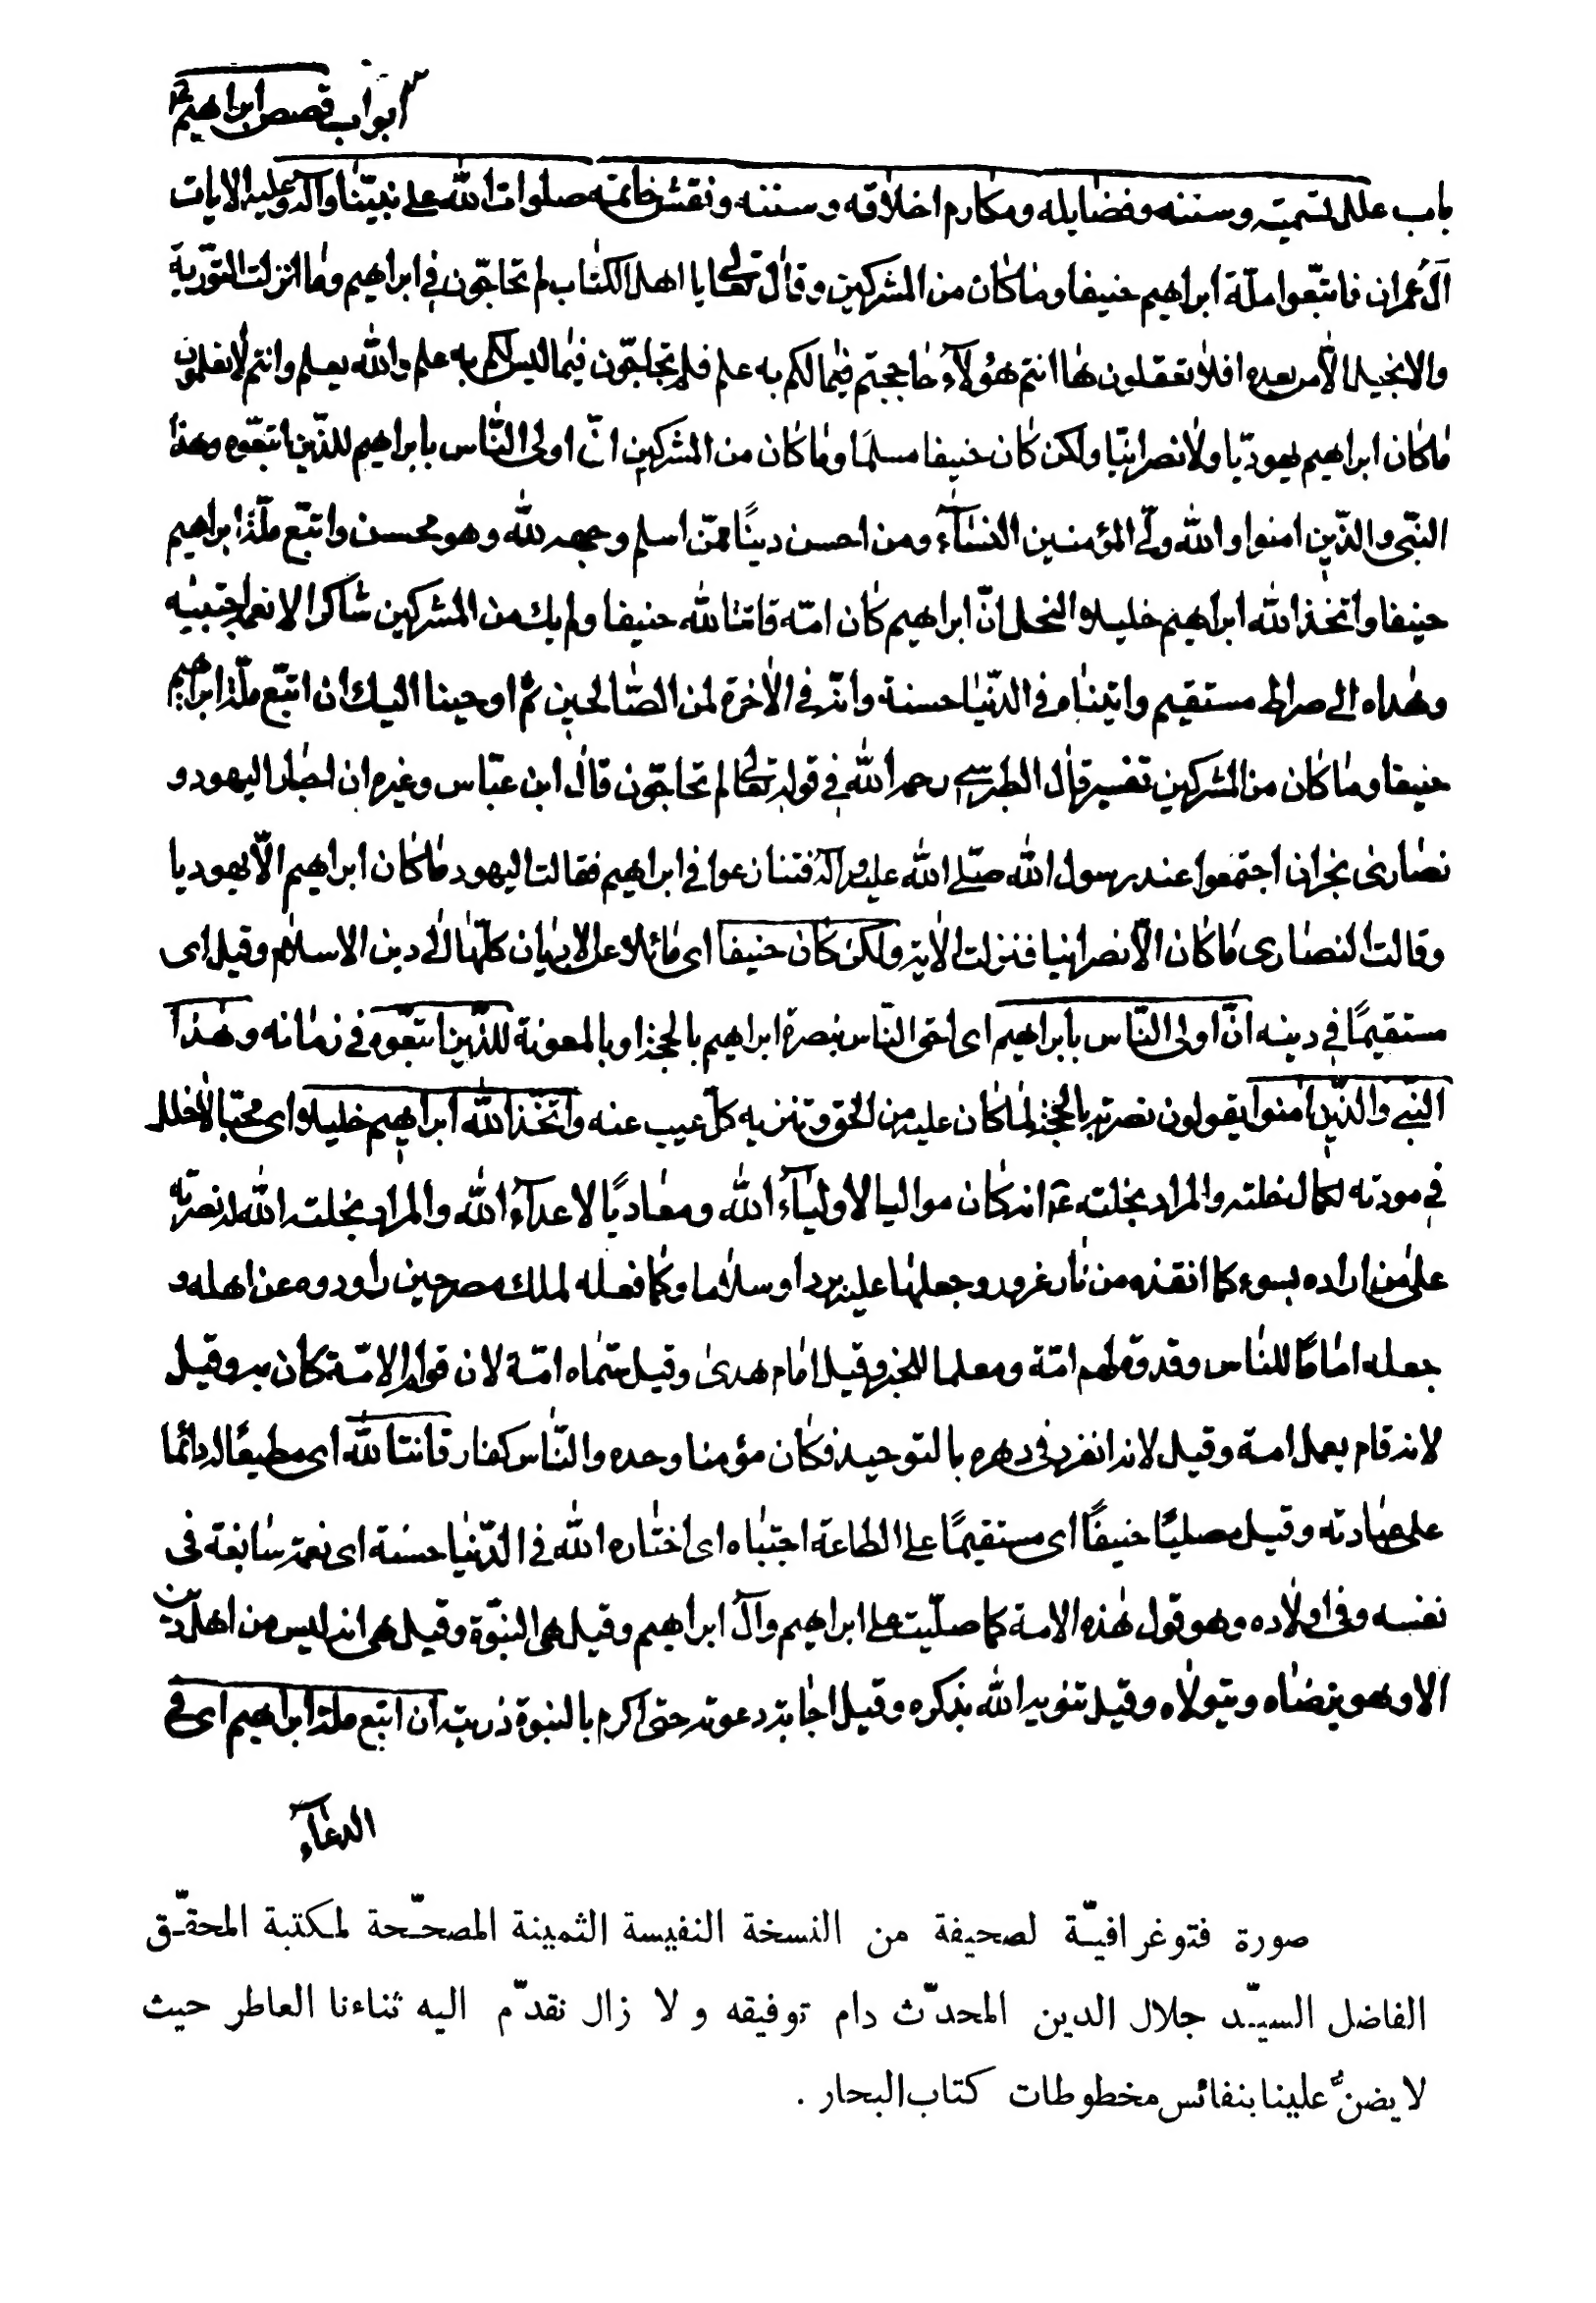 ابواب قصص ابراهيم ع
باب علل تسميته وسننه وفضايله ومكارم اخلاقه وسننه ونقش خاتمه صلوات الله على نبيّنا وآله وعليه الايات
آل عمران فاتبّعوا ملّة ابراهيم حنيفا وما كان من المشركين وقال تعالى يا اهل الكتاب لم تحاجّون في ابراهيم وما انزلت التوّرية
والانجيل الّا من بعده افلا تعقلون ها انتم هؤلآء حاججتم فيما لكم به علم فلم تحاجّون فيما ليس لكم به علم والله يعلم وانتم لا تعلمون
ما كان ابراهيم يهوديّا ولا نصرانيّا ولكن كان حنيفا مسلمًا وما كان من المشركين انّ اولى النّاس بابراهيم للذّين اتبعّوه وهذا
النبّى والذّين امنوا والله ولّى المؤمنين النسآء ومن احسن دينًا ممّن اسلم وجهه لله وهو محسن واتبّع ملّة ابراهيم
حنيفا واتخّذ الله ابراهيم خليلا النحل انّ ابراهيم كان امّة قانتا لله حنيفا ولم يك من المشركين شاكرا لانعمه اجتبيه
وهداه الى صراط مستقيم واتيناه في الدّنيا حسنة وانّه في الاخرة لمن الصّالحين ثمّ اوحينا اليك ان اتبّع ملّة ابراهيم
حنيفا وما كان من المشركين تفسير قال الطبرسي رحمه الله في قوله تعالى لم تحاجّون قال ابن عبّاس وغيره ان احبار اليهود و
نصارى نجران اجتمعوا عند رسول الله صلّى الله عليه وآله فتنازعوا في ابراهيم فقالت اليهود ما كان ابراهيم الّا يهوديا
وقالت النصارى ما كان الّا نصرانيا فنزلت الاية ولكن كان حنيفا اى مائلا عن الاديان كلّها الى دين الاسلام وقيل اى
مستقيمًا في دينه انّ اولى النّاس بابراهيم اى احق النّاس بنصرة ابراهيم بالحجة او بالمعونة للذّين اتبعّوه في زمانه وهذا
النبّي والذّين امنوا يقولون نصرته بالحجة لما كان عليه من الحق وتنزيه كلّ عيب عنه واتخّذ الله ابراهيم خليلا اى محبّا لا خلل
في مودته لكمال خلته والمراد بخلته ع انه كان مواليا لاوليآء الله ومعاديًا لاعدآء الله والمراد بخلة الله له نصرته
على من اراده بسوء كما انقذه من نار نمرود وجعلها عليه بردا وسلاما وكما فعله لملك مصر حين راوده عن اهله و
جعله امامًا للناس وقدوة لهم امّة ومعلما للخير وقيل امام هدى وقيل سمّاه امّة لان قوام الامّة كان به وقيل
لانه قام بعمل امة وقيل لانه انفرد في دهره بالتوحيد فكان مؤمنا وحده والنّاس كفار قانتا لله اى مطيعًا له دائمًا
على عبادته وقيل مصليّا حنيفًا اى مستقيمًا على الطاعة اجتباه اى اختاره الله في الدّنيا حسنة اى نعمة سابغة في
نفسه وفي اولاده وهو قول هذه الامة كما صلّيت على ابراهيم وآل ابراهيم وقيل هى النبّوة وقيل هى انه ليس من اهل دين
الا وهو يرضاه ويتولاه وقيل تنويه الله بذكره وقيل اجابة دعوته حتى اكرم بالنبوة ذريته ان اتبع ملة ابراهيم اى في
الدعآء
صورة فتوغرافيّة لصحيفة من النسخة النفيسة الثمينة المصحّحة لمكتبة المحقّق
الفاضل السيّد جلال الدين المحدّث دام توفيقه و لا زال نقدّم اليه ثناءنا العاطر حيث
لا يضنّ علينا بنفائس مخطوطات كتاب البحار .